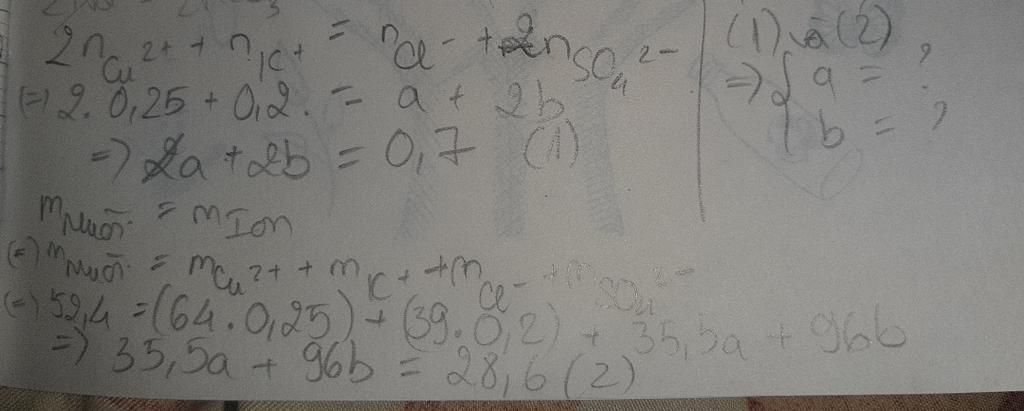 2n Cu²⁺ + n K⁺ = n Cl⁻ + 2n SO₄²⁻
(=) 2. 0,25 + 0,2. = a + 2b
=) a + 2b = 0,7 (1)
m muối = m Ion
(=) m muối = m Cu²⁺ + m K⁺ + m Cl⁻ + m SO₄²⁻
(=) 52,4 = (64. 0,25) + (39. 0,2) + 35,5a + 96b
=) 35,5a + 96b = 28,6 (2)
(1) và (2)
=) { a = ?
b = ?